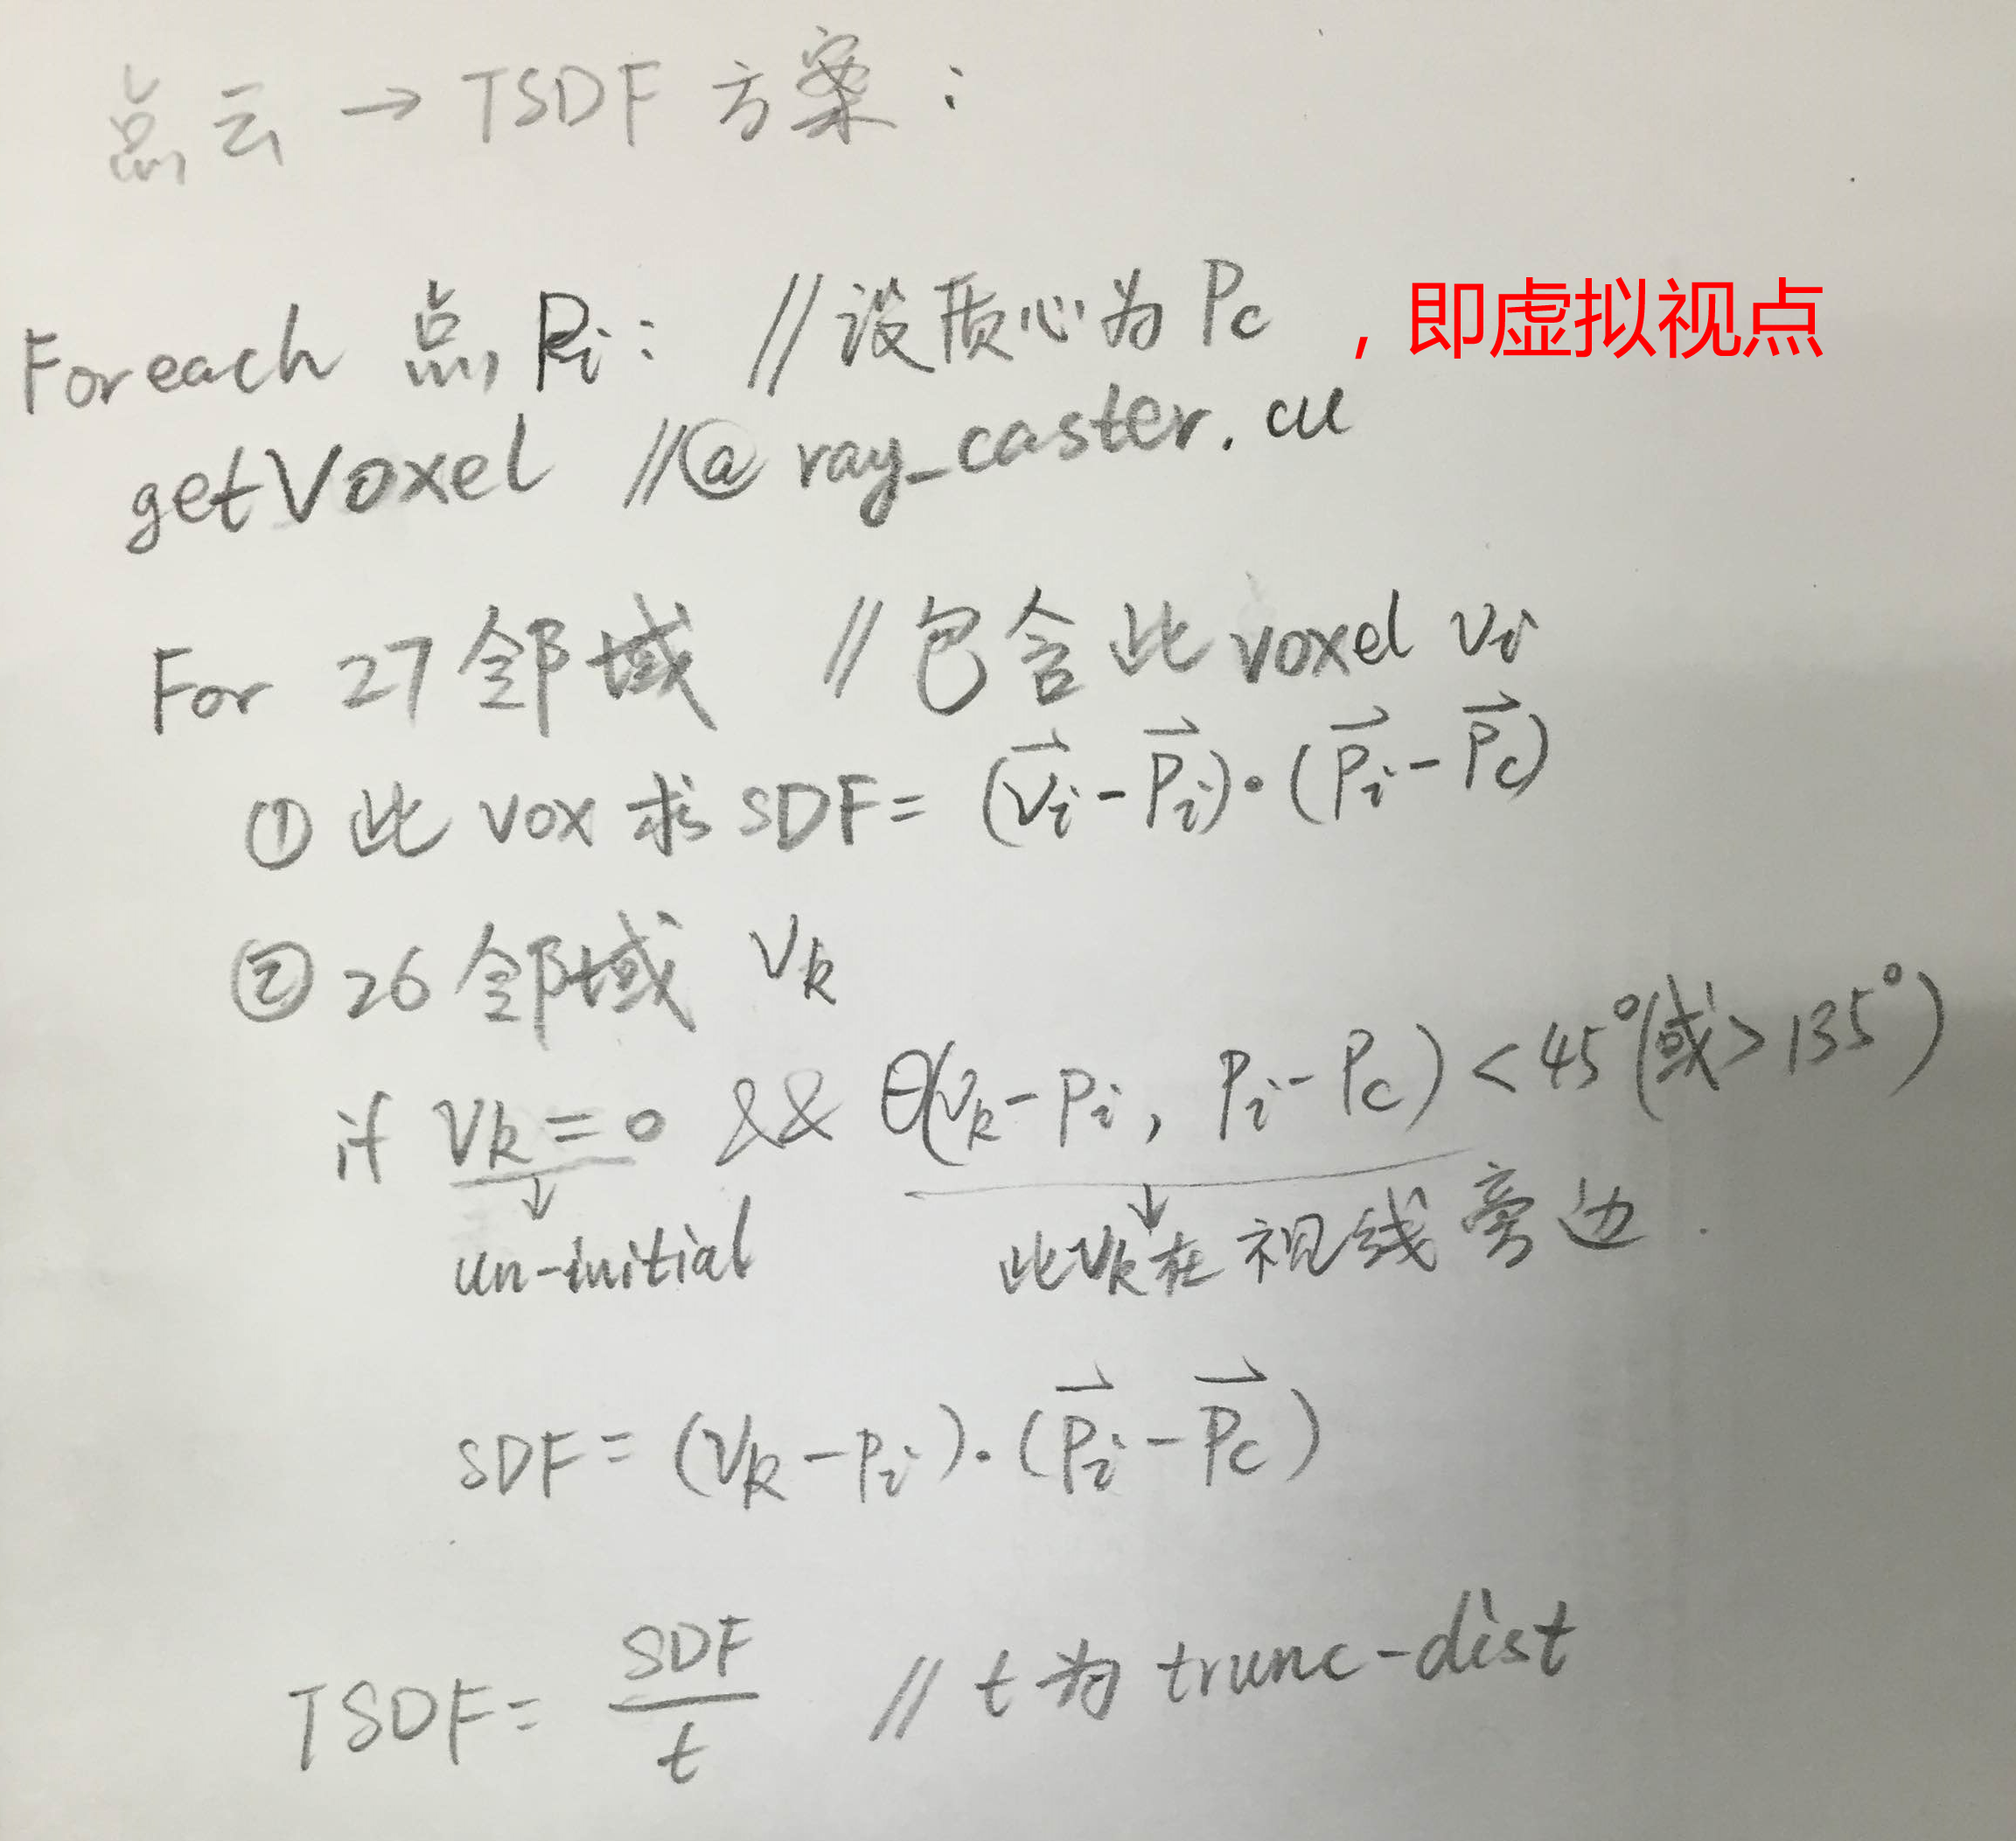 点云 → TSDF 方案：
Foreach 点 Pi: //设质心为 Pc ，即虚拟视点
getVoxel //@ ray_caster.cu
For 27邻域 //包含此 voxel vi
① 此 vox 求 SDF = (vi - Pi)·(Pi - Pc)
② 26邻域 Vk
if Vk = 0 && θ(Vk - Pi, Pi - Pc) < 45° (或 > 135°)
↓ ↓
un-initial 此Vk在视线旁边.
SDF = (Vk - Pi)·(Pi - Pc)
TSDF = SDF/t // t 为 trunc-dist